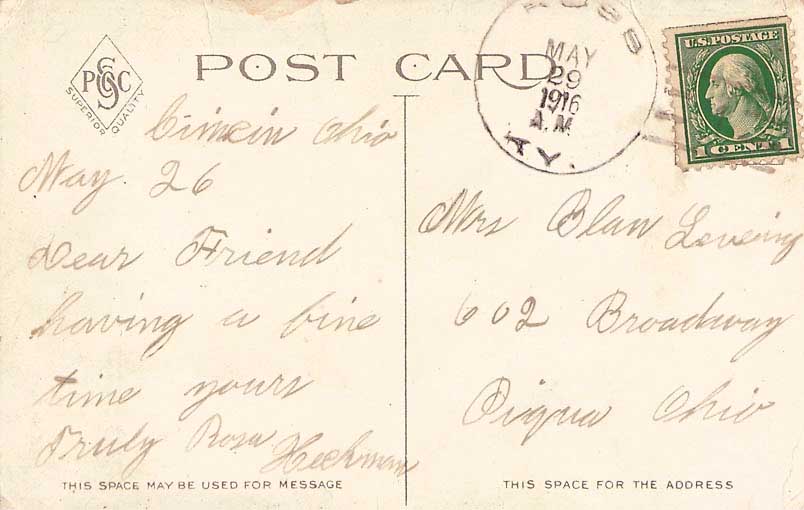 POST CARD
PSCC
SUPERIOR QUALITY
ROSS
MAY
29
1916
A.M.
KY.
U.S. POSTAGE
1 CENT 1
Cincin Ohio
May 26
Dear Friend
having a fine
time yours
Truly Rosa Heckman
THIS SPACE MAY BE USED FOR MESSAGE
Mrs Blan Levering
602 Broadway
Piqua Ohio
THIS SPACE FOR THE ADDRESS